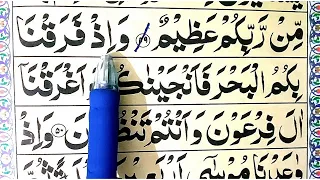 مِّنْ رَّبِّكُمْ عَظِيْمٌ ﴿٤٩﴾ وَاِذْ فَرَقْنَا
بِكُمُ الْبَحْرَ فَاَنْجَيْنٰكُمْ اَغْرَقْنَا
اٰلَ فِرْعَوْنَ وَاَنْتُمْ تَنْظُرُوْنَ ﴿٥٠﴾ وَاِذْ
وٰعَدْنَا مُوْسٰٓى